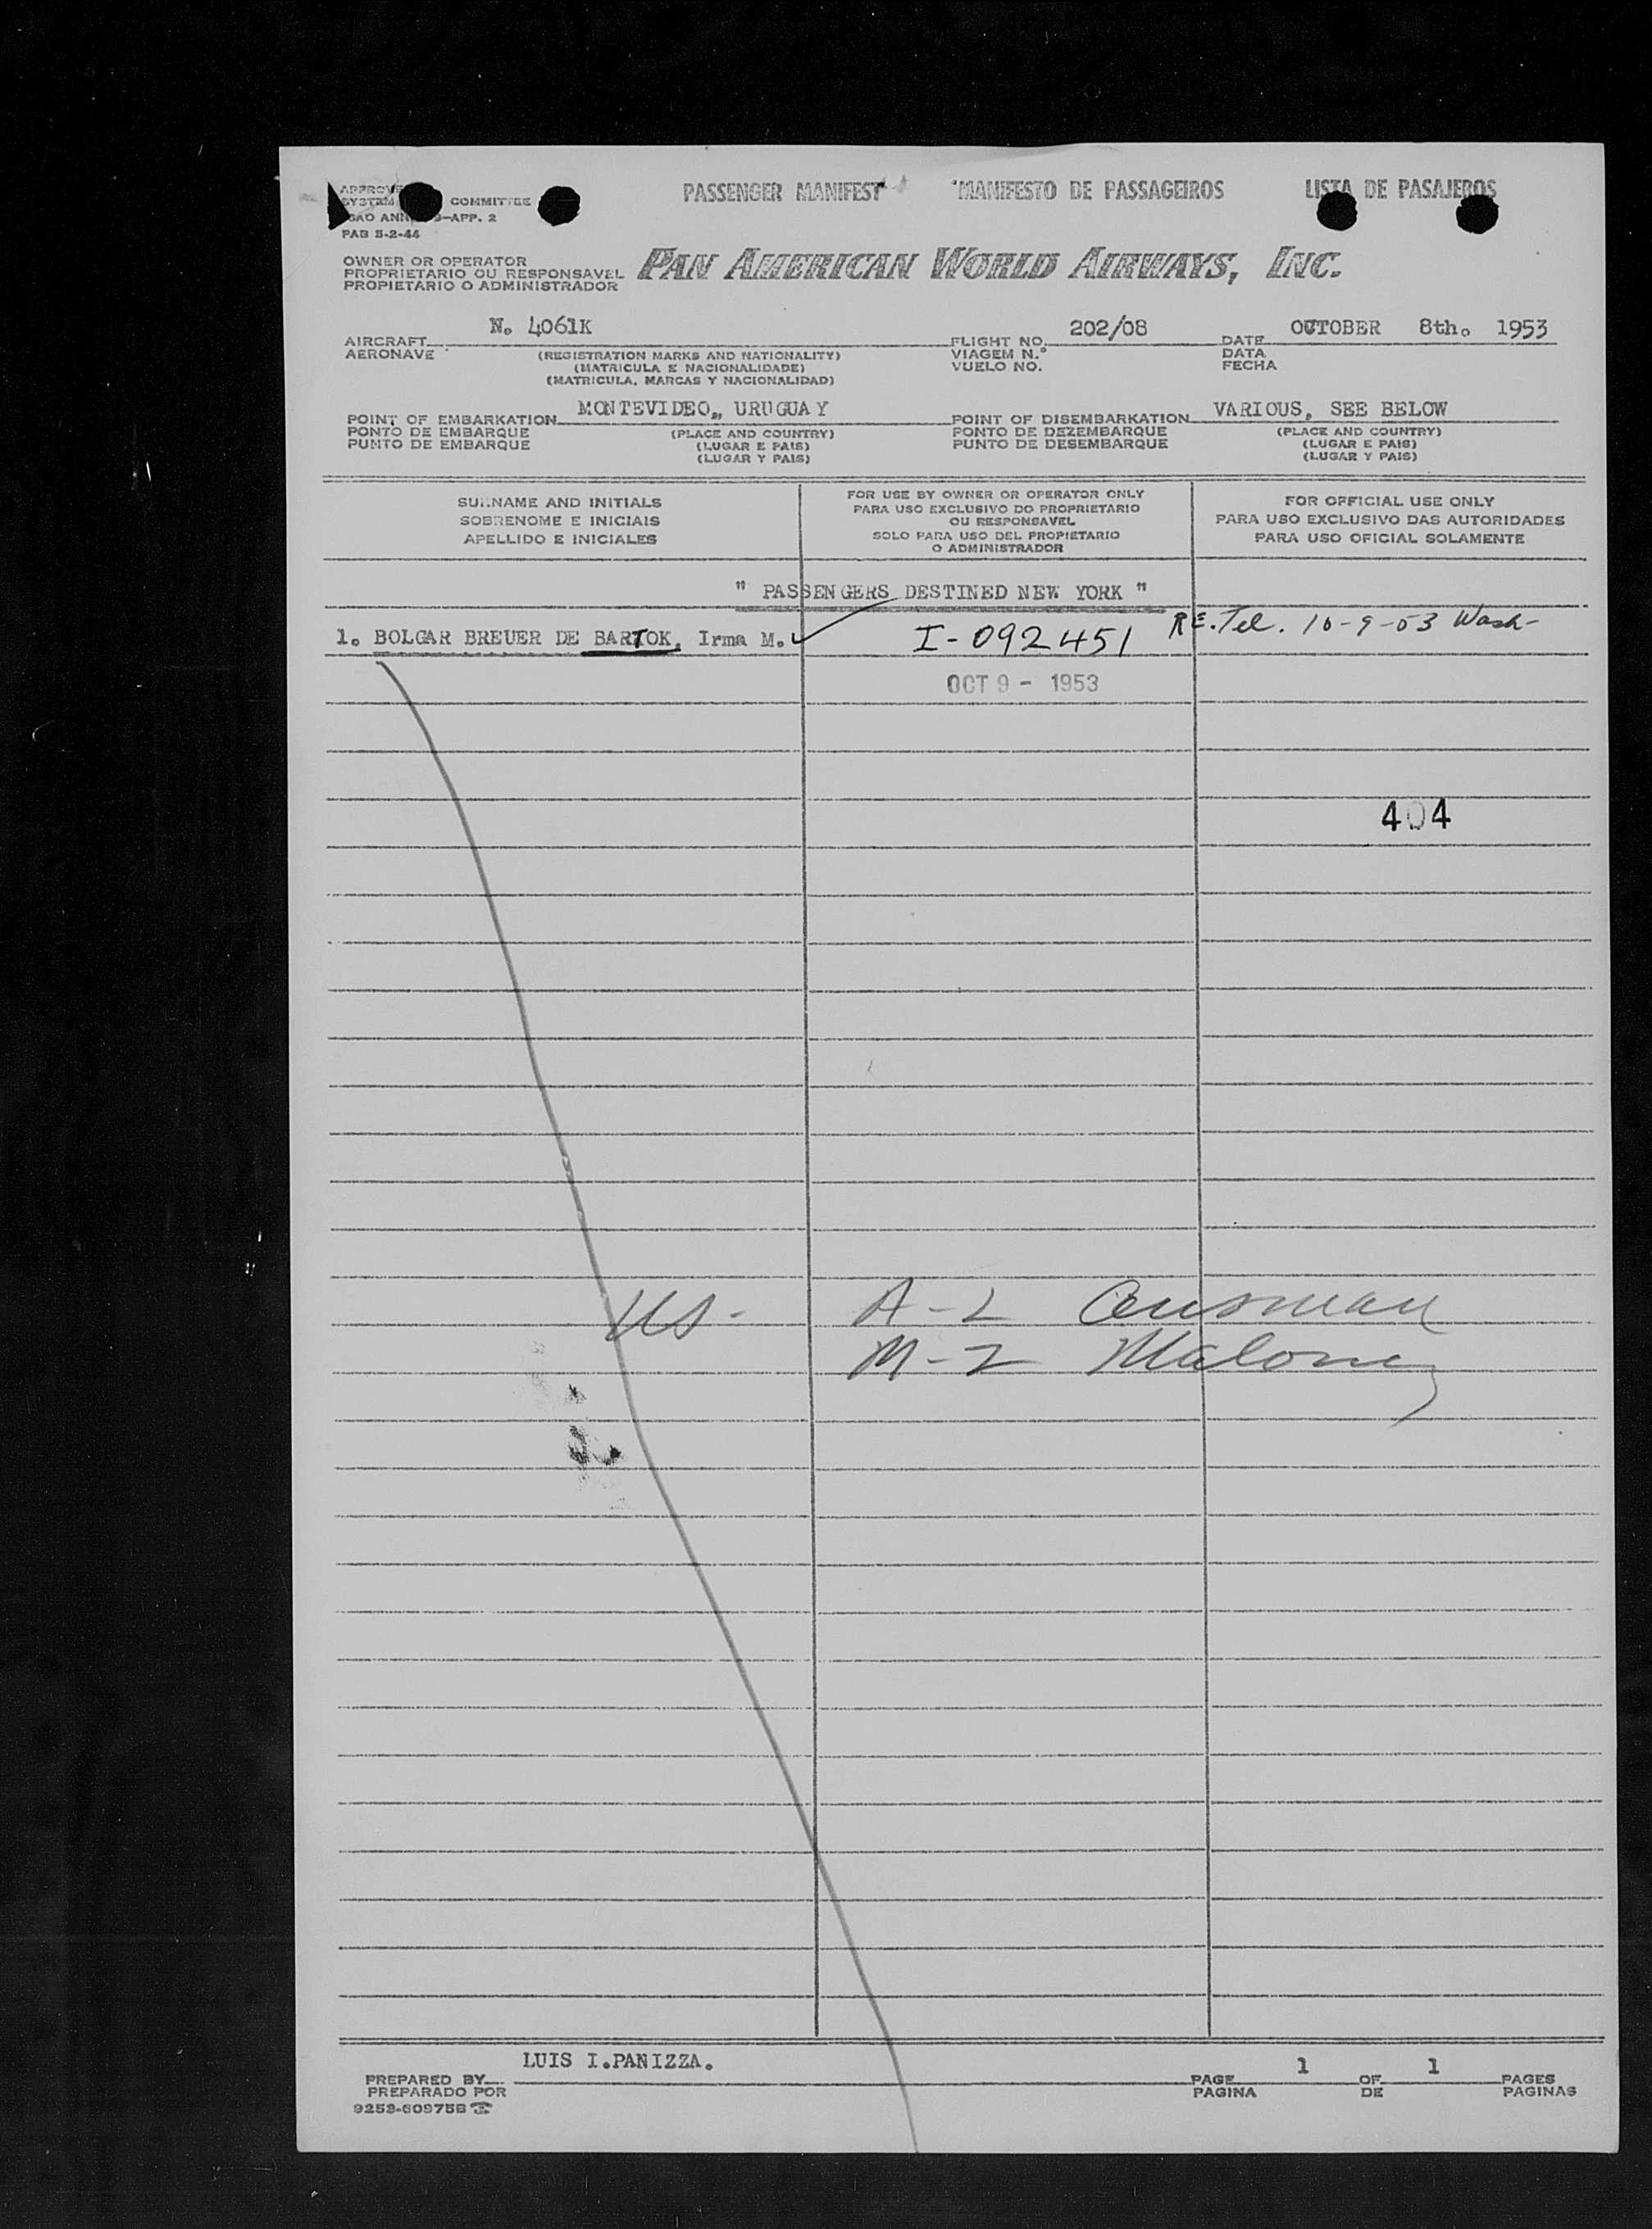 PASSENGER MANIFEST MANIFESTO DE PASSAGEIROS LISTA DE PASAJEROS
SYSTEM COMMITTEE
APP. 2
PAB 5-2-44
OWNER OR OPERATOR
PROPRIETARIO OU RESPONSAVEL
PROPIETARIO O ADMINISTRADOR
PAN AMERICAN WORLD AIRWAYS, INC.
N. 4061K 202/08 OCTOBER 8th. 1953
AIRCRAFT FLIGHT NO. DATE
AERONAVE (REGISTRATION MARKS AND NATIONALITY) VIAGEM N.° DATA
(MATRICULA E NACIONALIDADE) VUELO NO. FECHA
(MATRICULA, MARCAS Y NACIONALIDAD)
MONTEVIDEO, URUGUAY VARIOUS, SEE BELOW
POINT OF EMBARKATION POINT OF DISEMBARKATION
PONTO DE EMBARQUE (PLACE AND COUNTRY) PONTO DE DEZEMBARQUE (PLACE AND COUNTRY)
PUNTO DE EMBARQUE (LUGAR E PAIS) PUNTO DE DESEMBARQUE (LUGAR E PAIS)
(LUGAR Y PAIS) (LUGAR Y PAIS)
SURNAME AND INITIALS
SOBRENOME E INICIAIS
APELLIDO E INICIALES
FOR USE BY OWNER OR OPERATOR ONLY
PARA USO EXCLUSIVO DO PROPRIETARIO
OU RESPONSAVEL
SOLO PARA USO DEL PROPIETARIO
O ADMINISTRADOR
FOR OFFICIAL USE ONLY
PARA USO EXCLUSIVO DAS AUTORIDADES
PARA USO OFICIAL SOLAMENTE
" PASSENGERS DESTINED NEW YORK "
1. BOLGAR BREUER DE BARTOK, Irma M. I-092451 RE. Tel. 10-9-53 Wash-
OCT 9 - 1953
404
US - A-2
M-2 Maloney
LUIS I.PANIZZA.
PREPARED BY
PREPARADO POR
PAGE 1 OF 1 PAGES
PAGINA DE PAGINAS
9253-60975B